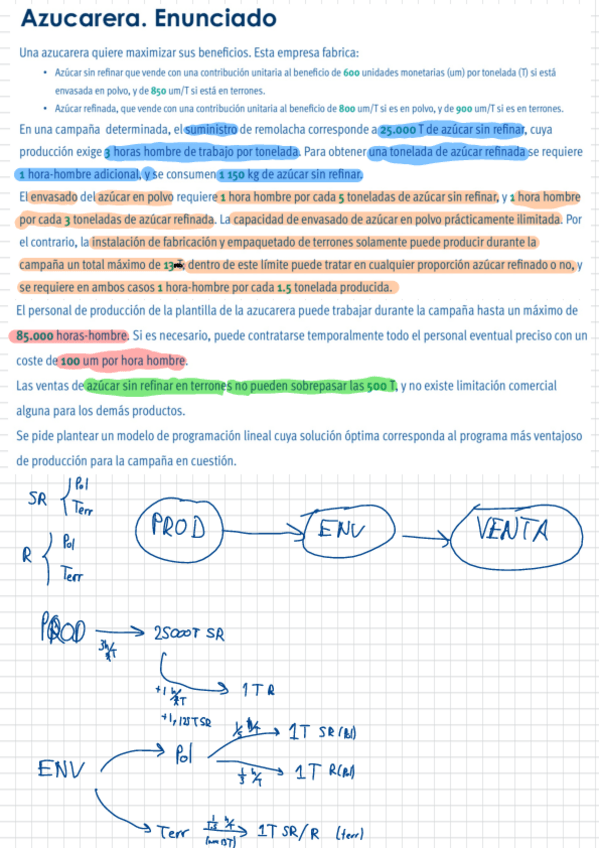 Azucarera. Enunciado
Una azucarera quiere maximizar sus beneficios. Esta empresa fabrica:
• Azúcar sin refinar que vende con una contribución unitaria al beneficio de 600 unidades monetarias (um) por tonelada (T) si está
envasada en polvo, y de 850 um/T si está en terrones.
• Azúcar refinada, que vende con una contribución unitaria al beneficio de 800 um/T si es en polvo, y de 900 um/T si es en terrones.
En una campaña determinada, el suministro de remolacha corresponde a 25.000 T de azúcar sin refinar, cuya
producción exige 3 horas hombre de trabajo por tonelada. Para obtener una tonelada de azúcar refinada se requiere
1 hora-hombre adicional, y se consumen 1 150 kg de azúcar sin refinar.
El envasado del azúcar en polvo requiere 1 hora hombre por cada 5 toneladas de azúcar sin refinar, y 1 hora hombre
por cada 3 toneladas de azúcar refinada. La capacidad de envasado de azúcar en polvo prácticamente ilimitada. Por
el contrario, la instalación de fabricación y empaquetado de terrones solamente puede producir durante la
campaña un total máximo de dentro de este límite puede tratar en cualquier proporción azúcar refinado o no, y
se requiere en ambos casos 1 hora-hombre por cada 1.5 tonelada producida.
El personal de producción de la plantilla de la azucarera puede trabajar durante la campaña hasta un máximo de
85.000 horas-hombre. Si es necesario, puede contratarse temporalmente todo el personal eventual preciso con un
coste de 100 um por hora hombre.
Las ventas de azúcar sin refinar en terrones no pueden sobrepasar las 500 T, y no existe limitación comercial
alguna para los demás productos.
Se pide plantear un modelo de programación lineal cuya solución óptima corresponda al programa más ventajoso
de producción para la campaña en cuestión.
SR { Pol
Terr
PROD → ENV → VENTA
R { Pol
Terr
PROD → 25000T SR
3h/T
+1 h/T → 1 T R
+1,125 T SR
ENV
Pol
1/5 h/T → 1T SR (Pol)
1/3 h/T → 1T R (Pol)
Terr 1/1.5 h/T → 1T SR/R (terr)